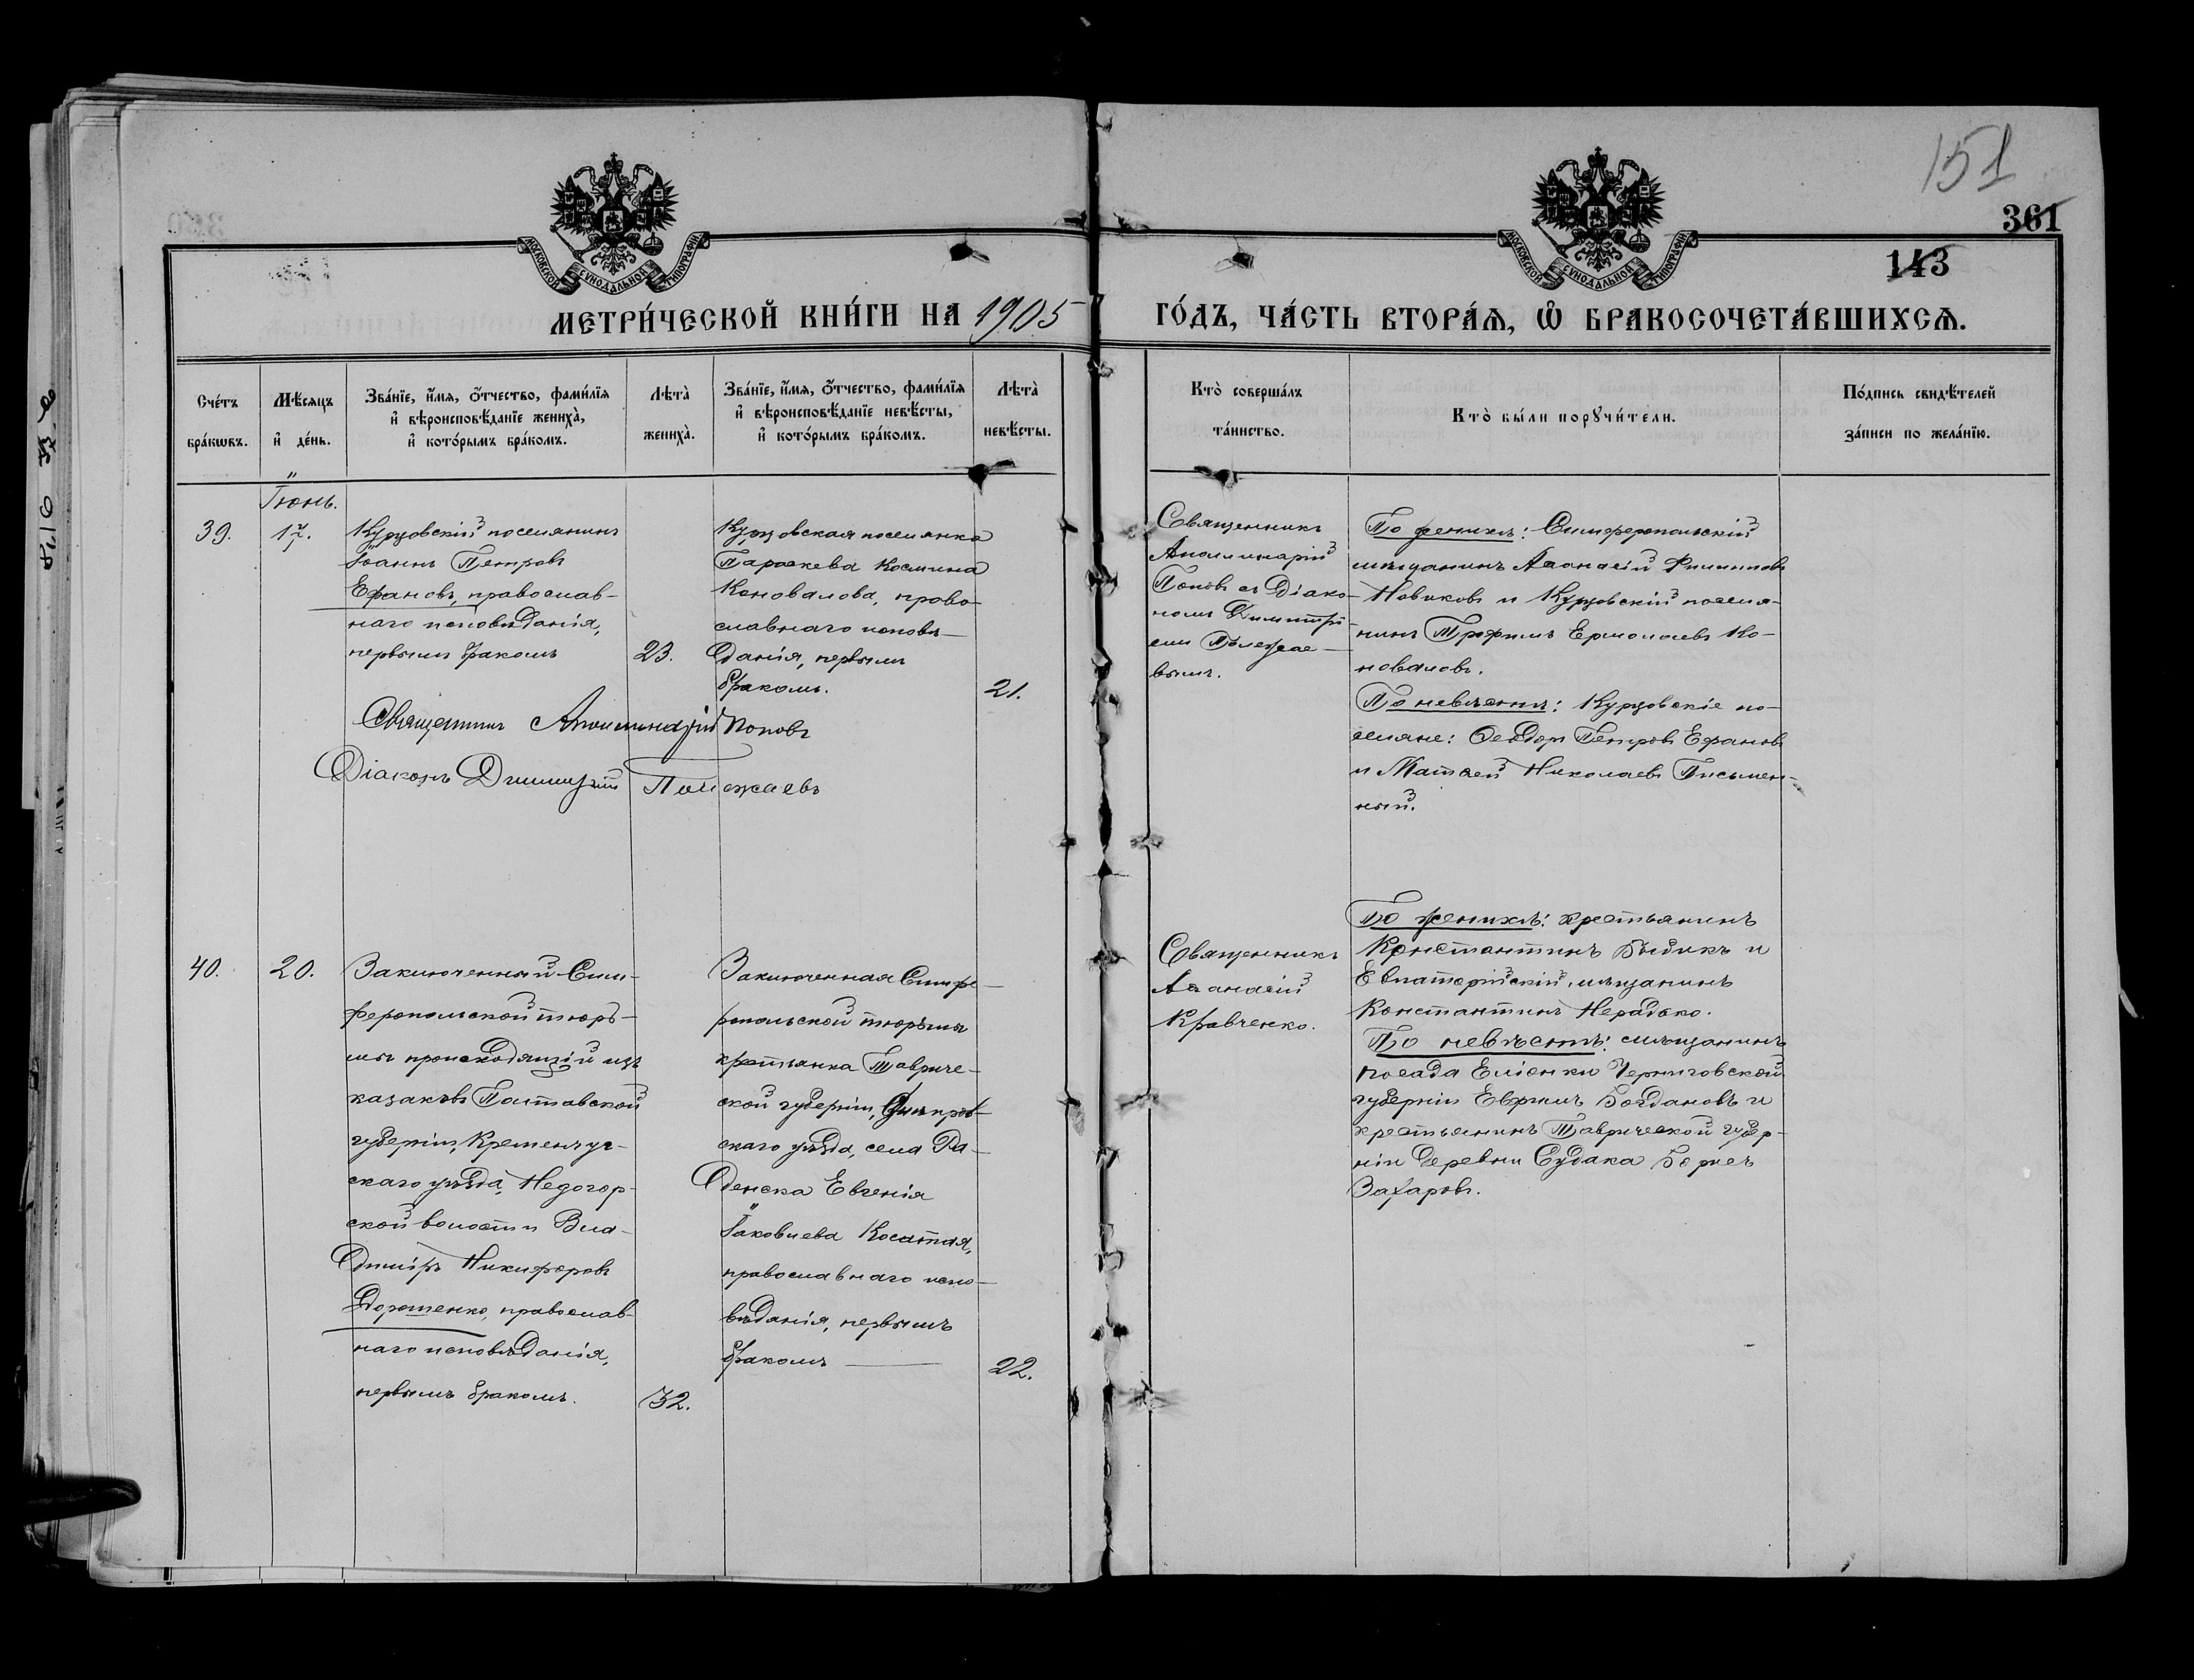 151
361
143
МОСКОВСКОЙ СѴНОДАЛЬНОЙ ТИПОГРАФІИ
МОСКОВСКОЙ СѴНОДАЛЬНОЙ ТИПОГРАФІИ
МЕТРИ́ЧЕСКОЙ КНИ́ГИ НА 1905 ГО́ДЪ, ЧА́СТЬ ВТОРА́Ѧ, Ѡ҆ БРАКОСОЧЕТА́ВШИХСѦ.
Сче́тъ
бра́кѡвъ.
Мѣ́сяцъ
и҆ де́нь.
Зва́нїе, и҆́мя, ѻ҆́тчество, фами́лїя
и҆ вѣроисповѣ́данїе жениха̀,
и҆ кото́рымъ бра́комъ.
Лѣта̀
жениха̀.
Зва́нїе, и҆́мя, ѻ҆́тчество, фами́лїя
и҆ вѣроисповѣ́данїе невѣ́сты,
и҆ кото́рымъ бра́комъ.
Лѣта̀
невѣ́сты.
Кто̀ соверша́лъ
та́инство.
Кто̀ бы́ли порꙋчи́тели.
По́дпись свидѣ́телей
за́писи по жела́нїю.
Іюнь.
39.
17.
Курцовскій поселянинъ
Іоаннъ Петровъ
Ефановъ, православ-
наго исповѣданія,
первымъ бракомъ
23.
Курцовская поселянка
Параскева Космина
Коновалова, право-
славнаго исповѣ-
данія, первымъ
бракомъ.
21.
Священникъ
Аполинарій
Поповъ съ Діако-
номъ Димитрі-
емъ Полежае-
вымъ.
По женихѣ: Симферопольскій
мѣщанинъ Аѳанасій Филиповъ
Новиковъ и Курцовскій поселя-
нинъ Трофимъ Ермолаевъ Ко-
новаловъ.
По невѣстѣ: Курцовскіе по-
селяне: Ѳеодоръ Петровъ Ефановъ
и Матѳей Николаевъ Письмен-
ный.
Священникъ Аполинарій Поповъ
Діаконъ Димитрій Полежаевъ
40.
20.
Заключенный Сим-
феропольской тюрь-
мы происходящій изъ
казаковъ Полтавской
губерніи, Кременчуг-
скаго уѣзда, Недогар-
ской волости Вла-
димиръ Никифоровъ
Дорошенко, православ-
наго исповѣданія,
первымъ бракомъ.
32.
Заключенная Симфе-
ропольской тюрьмы
крестьянка Тавриче-
ской губерніи, Днѣпров-
скаго уѣзда, села Ра-
денска Евгенія
Іаковлева Косатая,
православнаго испо-
вѣданія, первымъ
бракомъ
22.
Священникъ
Аѳанасій
Кравченко.
По женихѣ: крестьянинъ
Константинъ Быдикъ и
Евпаторійскій мѣщанинъ
Константинъ Нерадько.
По невѣстѣ: мѣщанинъ
посада Еліонки Черниговской
губерніи Евфимъ Богдановъ и
крестьянинъ Таврической губер-
ніи деревни Судака Борисъ
Захаровъ.